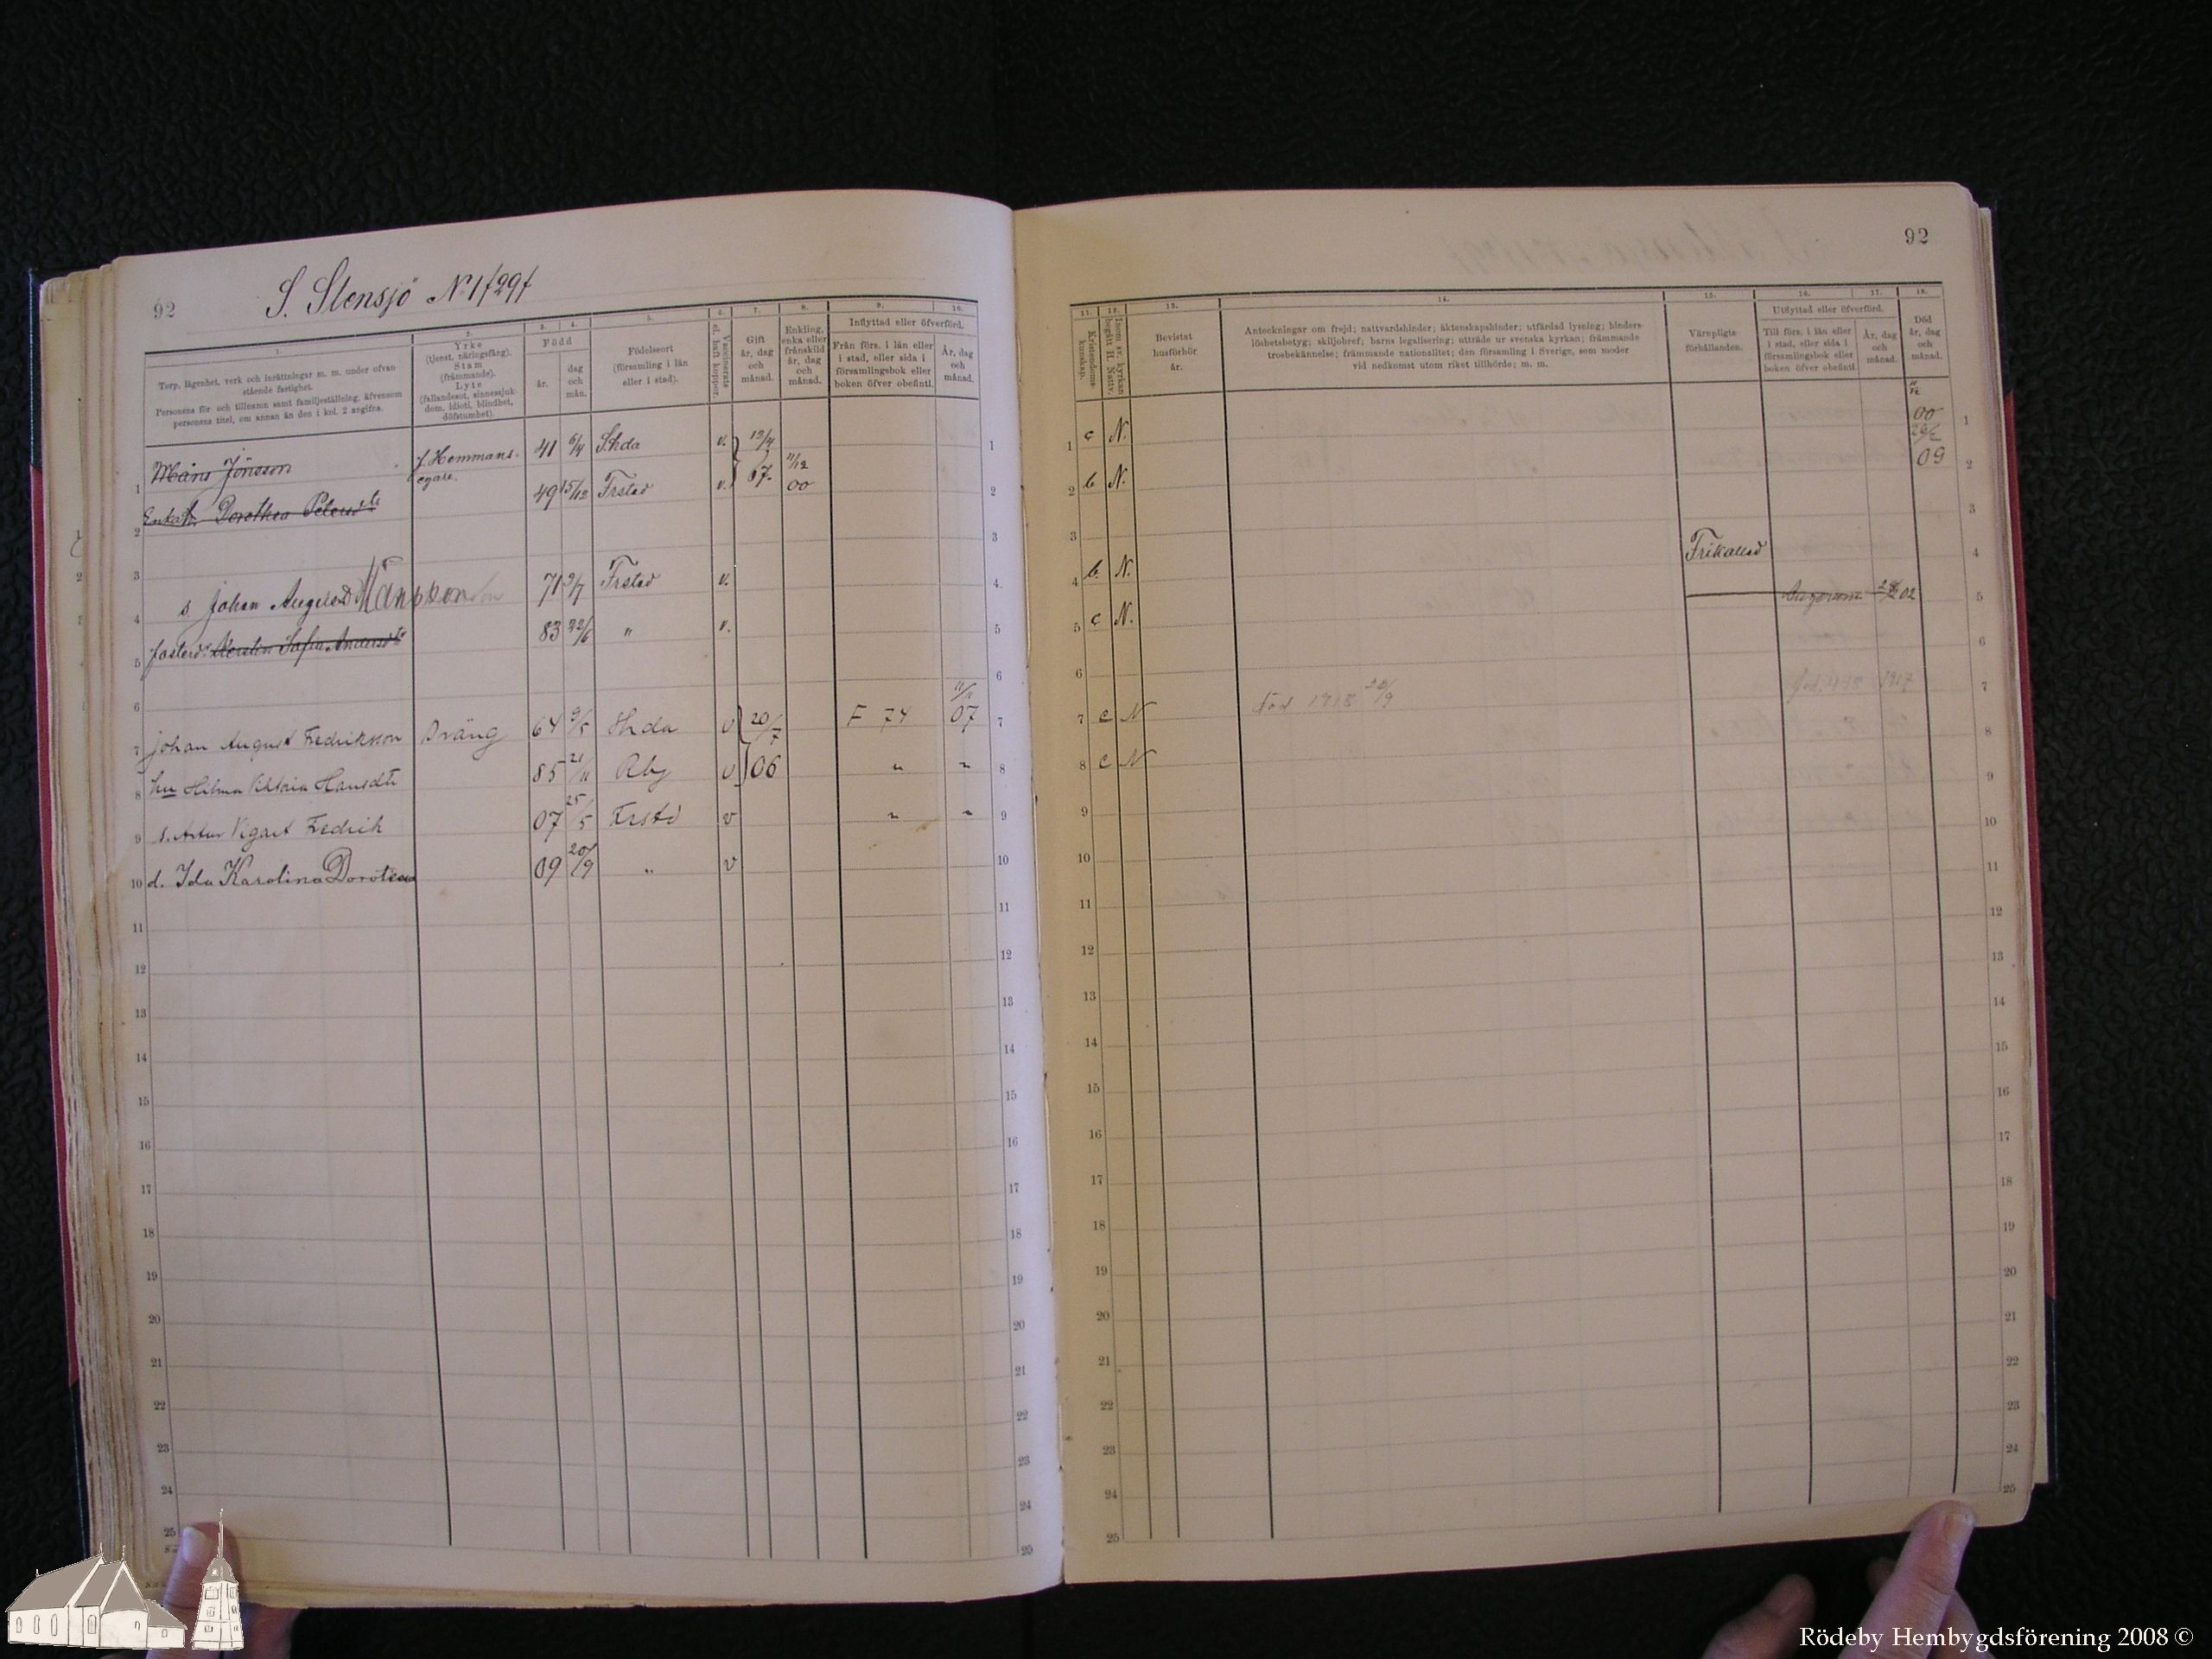 92
S. Stensjö N:o 1 f 29 f
1. 2. 3. 4. 5. 6. 7. 8. 9. 10.
Torp, lägenhet, verk och inrättningar m. m. under ofvanstående fastighet.
Personens för- och tillnamn samt familjeställning, äfvensom personens titel, om annan än den i kol. 2 angifna.
Yrke
(tjenst, näringsfång).
Stam
(främmande).
Lyte
(fallandesot, sinnessjukdom, idioti, blindhet, döfstumhet).
Född
år.
dag och mån.
Födelseort
(församling i län eller i stad).
Vaccinerats el. haft koppor.
Gift
år, dag och månad.
Enkling, enka eller frånskild
år, dag och månad.
Inflyttad eller öfverförd.
Från förs. i län eller i stad, eller sida i församlingsbok eller boken öfver obefintl.
År, dag och månad.
1 Måns Jönsson f. Hemmansegare. 41 6/4 v. 67
2 Enka Dorothea Petersdtr 49 15/12 Frstad v. 11/12 00
3
4 s. Johan August Månsson 71 Frstad v.
5 fosterd. Kerstin Sofia Andersdtr 83 22/6 " v.
6
7 Johan August Fredriksson Dräng 64 9/5 v 20/7 F 74 11/11 07
8 hu Hilma Viktoria Hansdtr 85 21/11 v 06 " "
9 s. Artur Vigart Fredrik 07 25/5 Frstd v " "
10 d. Ida Karolina Dorotea 09 20/9 " v
11
12
13
14
15
16
17
18
19
20
21
22
23
24
25
92
11. 12. 13. 14. 15. 16. 17. 18.
Kristendomskunskap.
Inom sv. kyrkan begått H. Nattv.
Bevistat husförhör
år.
Anteckningar om frejd; nattvardshinder; äktenskapshinder; utfärdad lysning; hinderslöshetsbetyg; skiljobref; barns legalisering; utträde ur svenska kyrkan; främmande trosbekännelse; främmande nationalitet; den församling i Sverige, som moder vid nedkomst utom riket tillhörde; m. m.
Värnpligtsförhållanden.
Utflyttad eller öfverförd.
Till förs. i län eller i stad, eller sida i församlingsbok eller boken öfver obefintl.
År, dag och månad.
Död
år, dag och månad.
1 c N. 00
2 b N. 09
3
4 b. N. Frikallad
5 c N. 02
6
7 c N död 1918 1917
8 c N
9
10
11
12
13
14
15
16
17
18
19
20
21
22
23
24
25
Rödeby Hembygdsförening 2008 ©